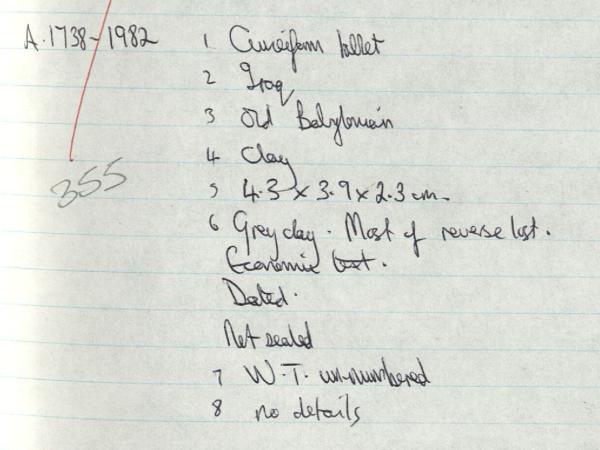 A.1738-1982
1 Cuneiform tablet
2 Iraq
3 Old Babylonian
4 Clay
5 4.3 x 3.9 x 2.3 cm.
355
6 Grey clay. Most of reverse lost.
Economic text.
Dated.
Not sealed
7 W.T. un-numbered
8 no details